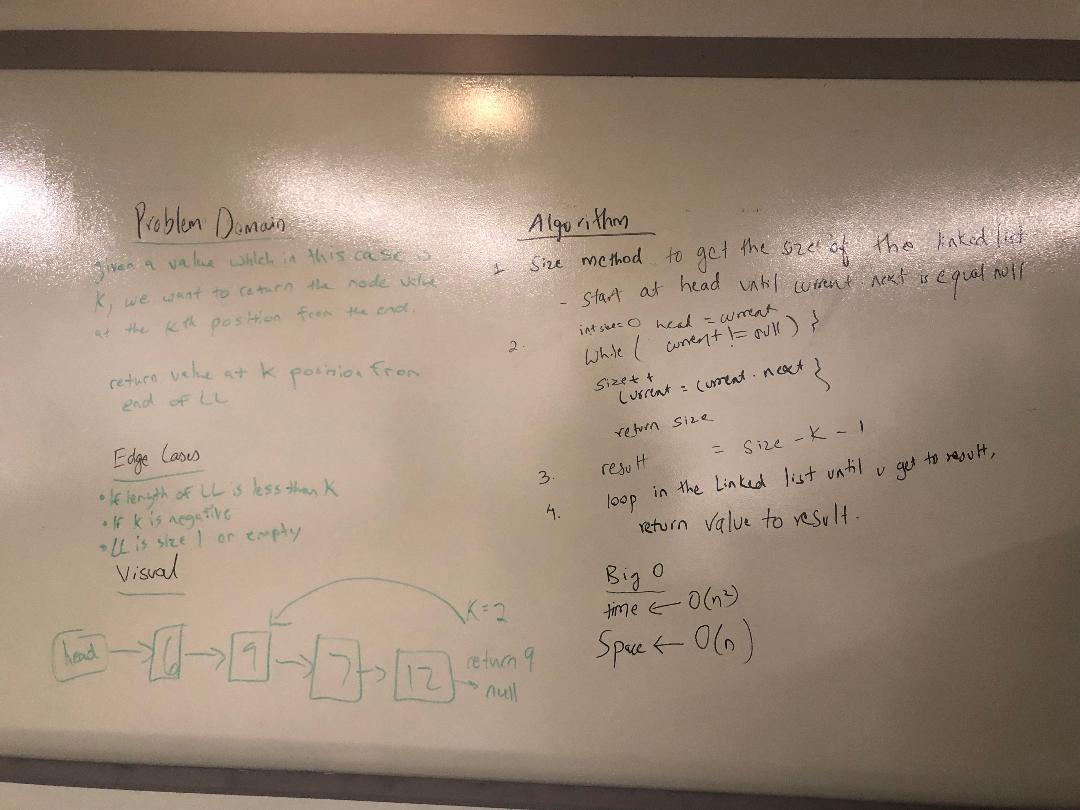 Problem Domain
given a value which in this case is
K, we want to return the node value
at the Kth position from the end.
return value at K position from
end of LL
Edge Cases
• If length of LL is less than K
• If K is negative
• LL is size 1 or empty
Visual
K=2
head
6
9
7
12
return 9
null
Algorithm
1. Size method to get the size of the linked list
- Start at head until current next is equal null
2. int size=0 head = current
While ( current != null ) }
size++
current = current.next }
return size
3. result = size - K - 1
4. loop in the Linked list until u get to result,
return value to result.
Big O
time ← O(n²)
Space ← O(n)